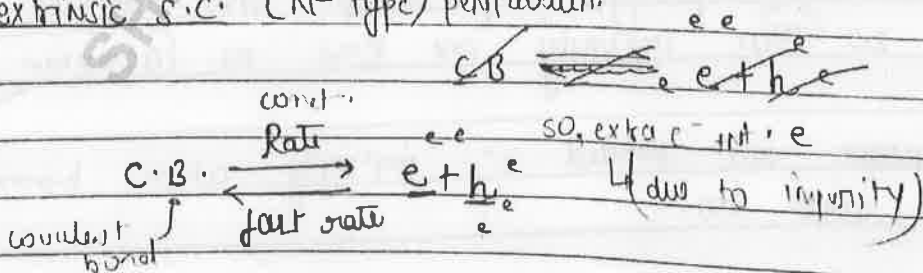 extrinsic S.C. (N-type) pentavalent.
e e
CB e e + h e
const.
Rate e e so, extra e⁻ int. e
C.B. e + h e (due to impurity)
covalent fast rate e e
bond